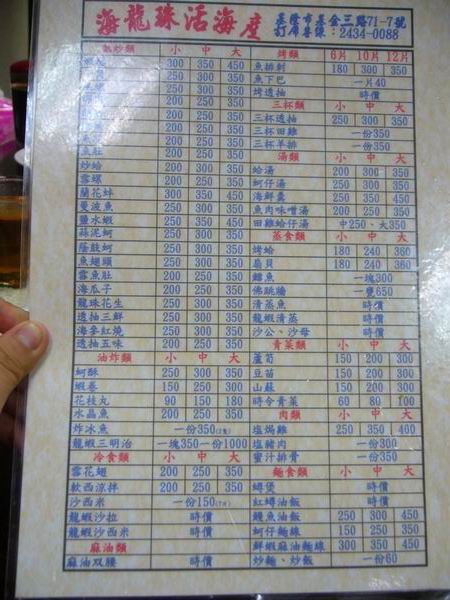 海龍珠活海產
基隆市基金三路71-7號
訂席專線:2434-0088
熱炒類 小 中 大
300 350 450
200 250 350
200 250 350
200 250 350
200 250 350
魚肚 200 250 350
炒蛤 200 250 350
雪螺 200 250 350
蘭花蚌 300 350 450
曼波魚 250 300 350
鹽水蝦 250 300 350
蒜泥蚵 250 300 350
蔭豉蚵 200 250 350
魚翅頭 250 300 350
雪魚肚 200 250 350
海瓜子 200 250 350
龍珠花生 250 300 350
透抽三鮮 250 300 350
海參紅燒 250 300 350
透抽五味 200 250 350
油炸類 小 中 大
蚵酥 200 250 350
蝦卷 150 250 300
花枝丸 90 150 180
水晶魚 200 250 350
炸冰魚 一份350
龍蝦三明治 一塊350一份1000
冷食類 小 中 大
雪花翅 200 250 350
軟西涼拌 200 250 350
沙西米 一份150
龍蝦沙拉 時價
龍蝦沙西米 時價
麻油類
麻油双腰 時價
烤類 6片 10片 12片
魚排對 180 300 350
魚下巴 一片40
烤透抽 時價
三杯類 小 中 大
三杯透抽 250 300 350
三杯田雞 一份350
三杯羊排 一份350
湯類 小 中 大
蛤湯 200 250 300
蚵仔湯 200 250 300
海鮮羹 250 350 450
魚肉味噌湯 200 250 350
田雞蛤仔湯 中250、大350
蒸食類 小 中 大
烤蛤 180 240 360
扇貝 180 240 360
鱈魚 一塊300
佛跳牆 一甕650
清蒸魚 時價
龍蝦清蒸 時價
沙公、沙母 時價
青菜類 小 中 大
蘆筍 150 200 300
豆苗 150 200 300
山蘇 150 200 300
時令青菜 60 80 100
肉類 小 中 大
塩焗雞 250 350 400
塩豬肉 一份300
蜜汁排骨 一份350
麵食類 小 中 大
蟳煲 時價
紅蟳油飯 時價
鰻魚油飯 250 300 450
蚵仔麵線 150 250 350
鮮蝦麻油麵線 300 350 450
炒麵、炒飯 一份60